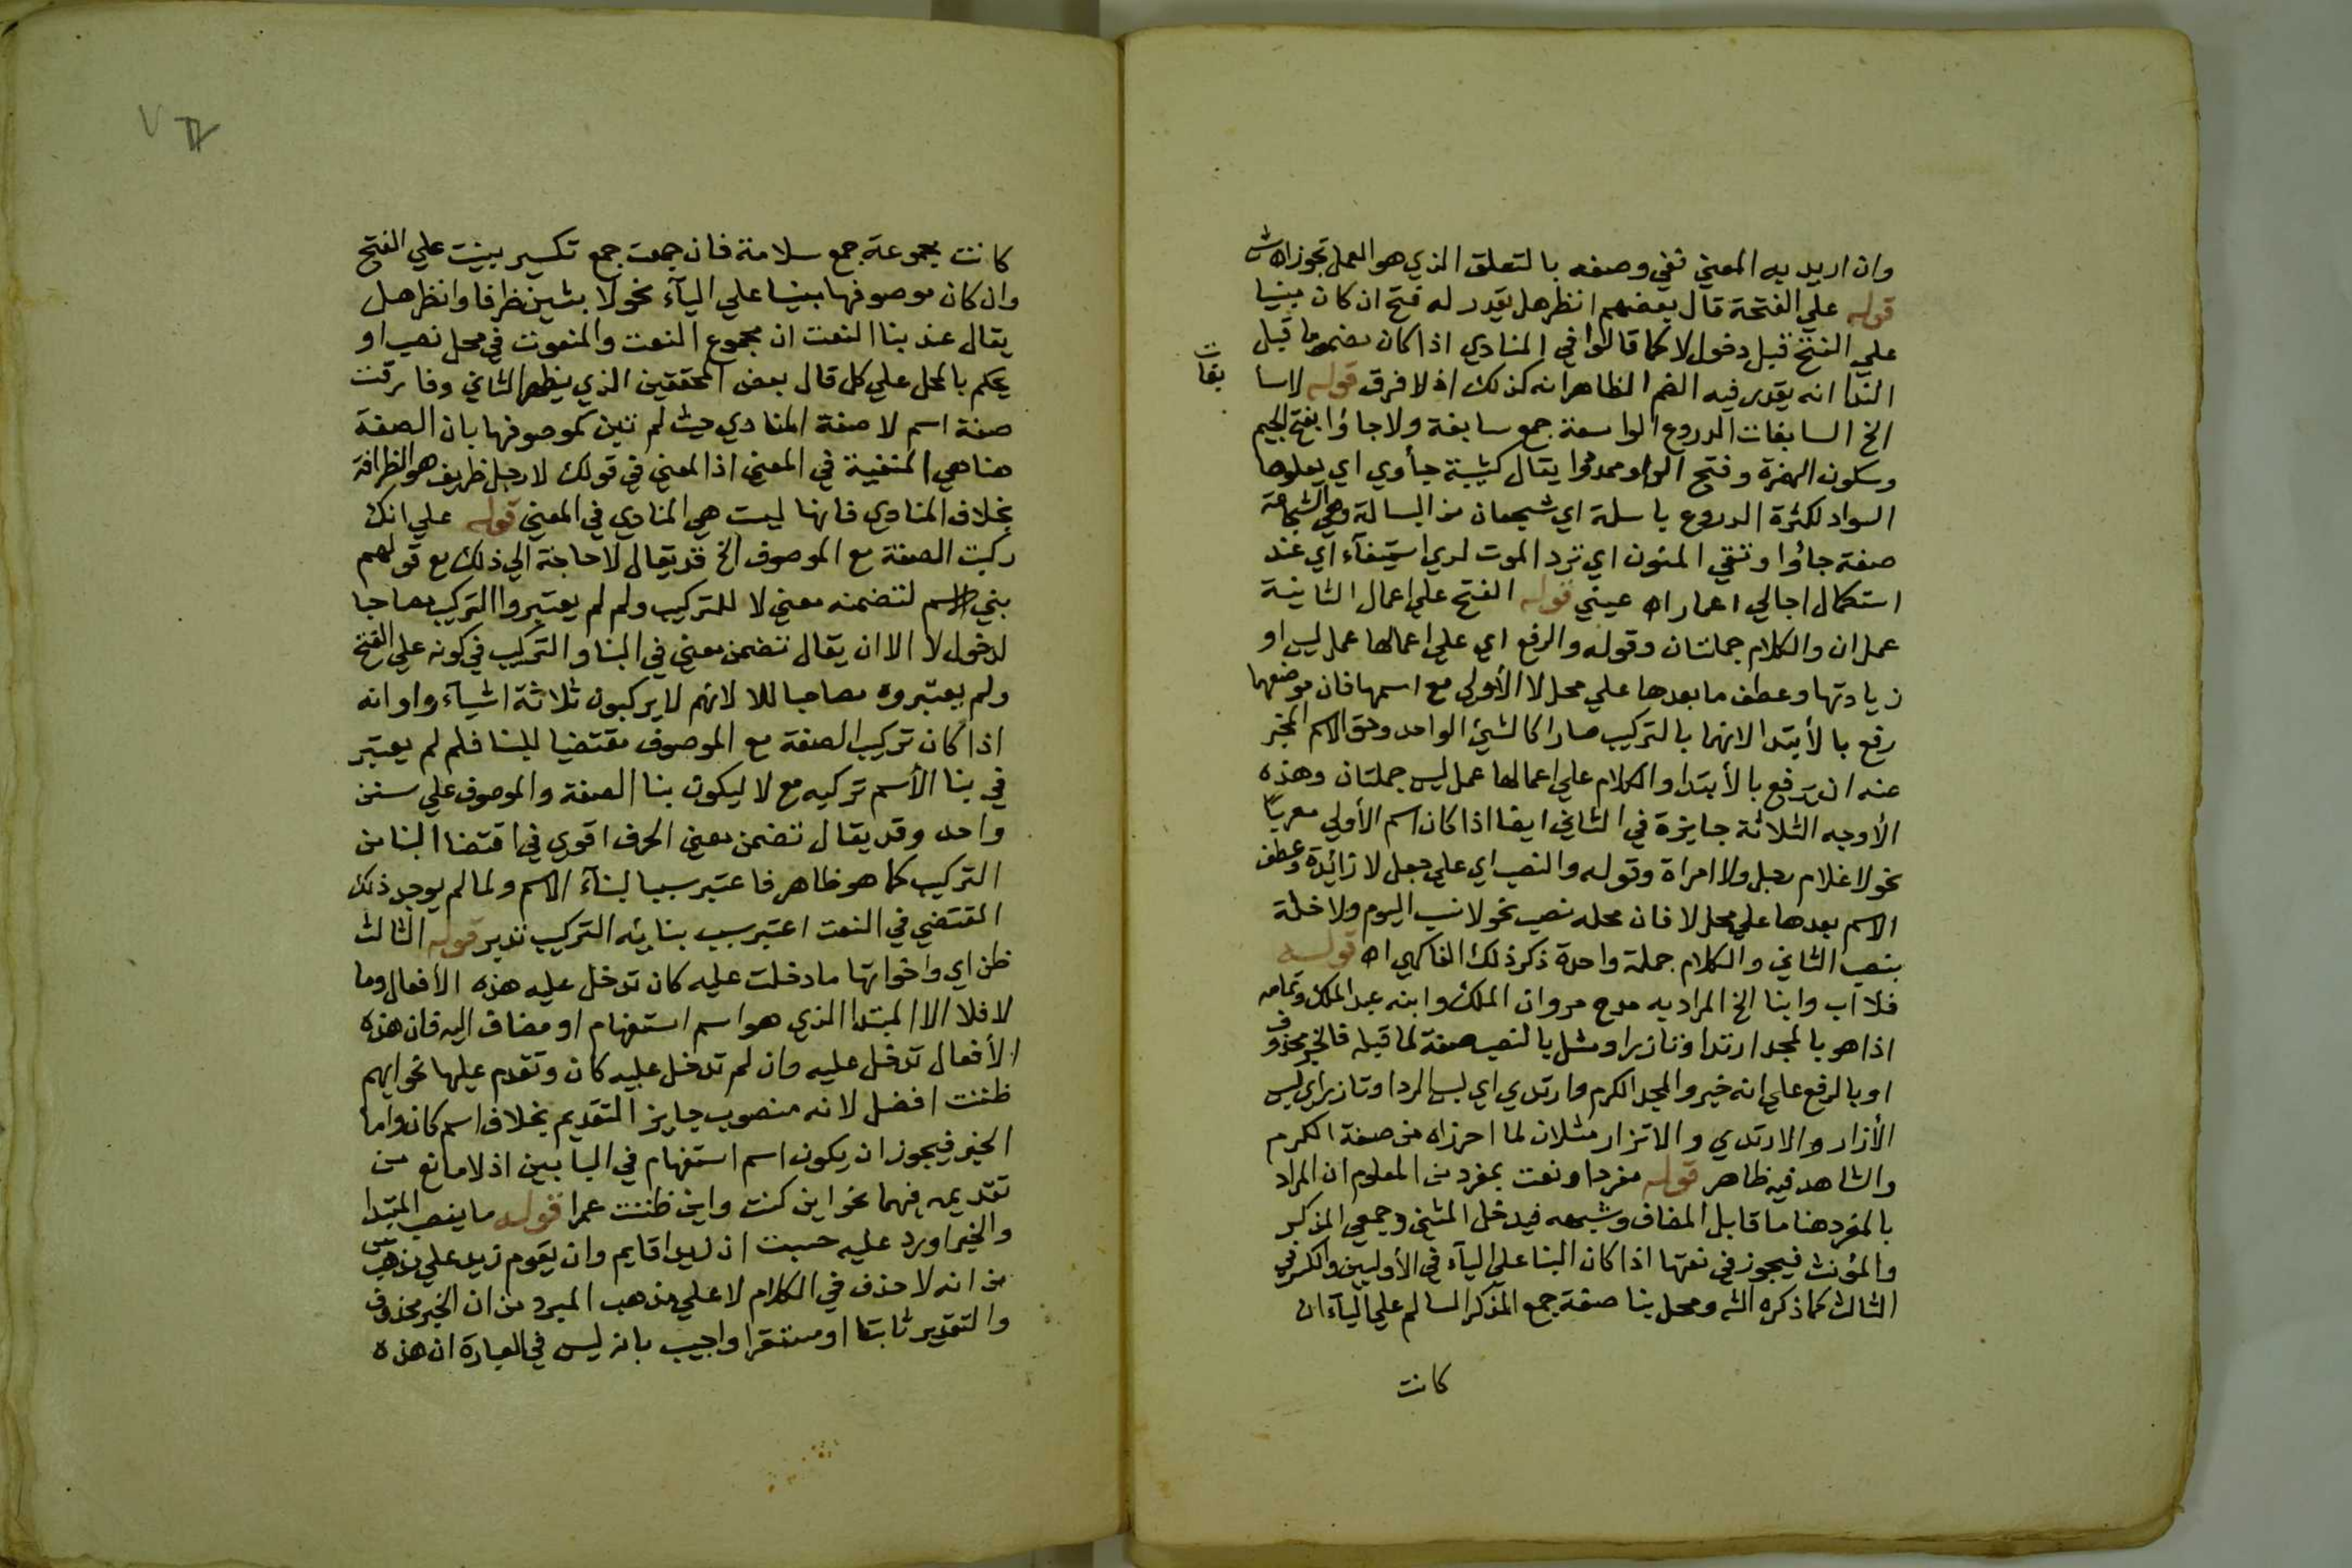 وان اريد به المعني ففي وصفه بالتعلق الذي هو العمل تجوز اه ش
قوله علي الفتحة قال بعضهم انظر هل يقدر له فتح ان كان مبنيا
علي الفتح قبل دخول لا كما قالوا في المنادي اذا كان مضموما قبل
الندا انه يقدر فيه الضم الظاهر انه كذلك اذ لا فرق قوله لا سا
بغات
الخ السابغات الدروع الواسعة جمع سابغة ولا جاؤا بفتح الجيم
وسكون الهمزة وفتح الواو ممدودا يقال كتيبة جأوي اي يعلوها
السواد لكثرة الدروع باسلة اي شجعان من البسالة وهي الشجاعة
صفة جاؤا وتقي المنون اي ترد الموت لدي استيفآء اي عند
استكمال اجالي اعمار اه عيني قوله الفتح علي اعمال الثانية
عمل ان والكلام جملتان وقوله والرفع اي علي اعمالها عمل ليس او
زيادتها وعطف ما بعدها علي محل لا الأولي مع اسمها فان موضعهما
رفع بالأبتدا لانهما بالتركيب صارا كالشيئ الواحد وحق الاسم المخبر
عنه ان يرفع بالأبتدا والكلام علي اعمالها عمل ليس جملتان وهذه
الأوجه الثلاثة جايزة في الثاني ايضا اذا كان اسم الأولي معربا
نحو لا غلام رجل ولا امراة وقوله والنصب اي علي جعل لا زائدة وعطف
الاسم بعدها علي محل لا فان محله نصب نحو لا نسب اليوم ولا خلة
بنصب الثاني والكلام جملة واحدة ذكر ذلك الفاكهي اه قوله
فلا اب وابنا الخ المراد به مدح مروان الملك وابنه عبد الملك وتمامه
اذا هو بالمجد ارتدا وتازرا ومثل بالنصب صفة لما قبله فالخبر محذوف
او بالرفع علي انه خبر والمجد الكرم وارتدي اي لبس الردا وتازر اي لبس
الأزار والارتدي والاتزار مثلان لما احرزاه من صفة الكرم
والشاهد فيه ظاهر قوله مفردا ونعت بمفرد من المعلوم ان المراد
بالمفرد هنا ما قابل المضاف وشبهه فيدخل المثني وجمعي المذكر
والمؤنث فيجوز في نعتها اذا كان البنا علي اليآء في الأوليين والكسر في
الثالث كما ذكره الشه ومحل بنا صفة جمع المذكر السالم علي اليآء ان
كانت
كانت مجموعة جمع سلامة فان جمعت جمع تكسير بنيت علي الفتح
وان كان موصوفها مبنيا علي اليآء نحو لا بنين ظرافا وانظر هل
يقال عند بنا النعت ان مجموع النعت والمنعوت في محل نصب او
يحكم بالمحل علي كل قال بعض المحققين الذي يظهر الثاني وفارقت
صفة اسم لا صفة المنادي حيث لم تبن كموصوفها بان الصفة
هنا هي المنفية في المعني اذ المعني في قولك لا رجل ظريف هو الظرافة
بخلاف المنادي فانها ليست هي المنادي في المعني قوله علي انك
ركبت الصفة مع الموصوف الخ قد يقال لا حاجة الي ذلك مع قولهم
بني الاسم لتضمنه معني لا للتركيب ولم لم يعتبروا التركيب مصاحبا
لدخول لا الا ان يقال تضمن معني في البنا والتركيب في كونه علي الفتح
ولم يعتبروه مصاحبا للا لانهم لا يركبون ثلاثة اشيآء واو انه
اذا كان تركيب الصفة مع الموصوف مقتضيا للبنا فلم لم يعتبر
في بنا الأسم تركيبه مع لا ليكون بنا الصفة والموصوف علي سنن
واحد وقد يقال تضمن معني الحرف اقوي في اقتضا البنا من
التركيب كما هو ظاهر فاعتبر سببا لبنآء الاسم ولما لم يوجد ذلك
المقتضي في النعت اعتبر سبب بنائيه التركيب تدبر قوله الثالث
ظن اي واخواتها ما دخلت عليه كان تدخل عليه هذه الأفعال وما
لا فلا الا المبتدا الذي هو اسم استفهام او مضاف اليه فان هذه
الأفعال تدخل عليه وان لم تدخل عليه كان وتقدم عليها نحو ايهم
ظننت افضل لانه منصوب جايز التقديم بخلاف اسم كان واما
الخبر فيجوز ان يكون اسم استفهام في البابين اذ لا مانع من
تقديمه فيهما نحو اين كنت واين ظننت عمرا قوله ما ينصب المبتدا
والخبر اورد عليه حسبت ان زيدا قايم وان يقوم زيد علي مذهب س
من انه لا حذف في الكلام لا علي مذهب المبرد من ان الخبر محذوف
والتقدير ثابتا او مستقرا واجيب بانه ليس في العبارة ان هذه